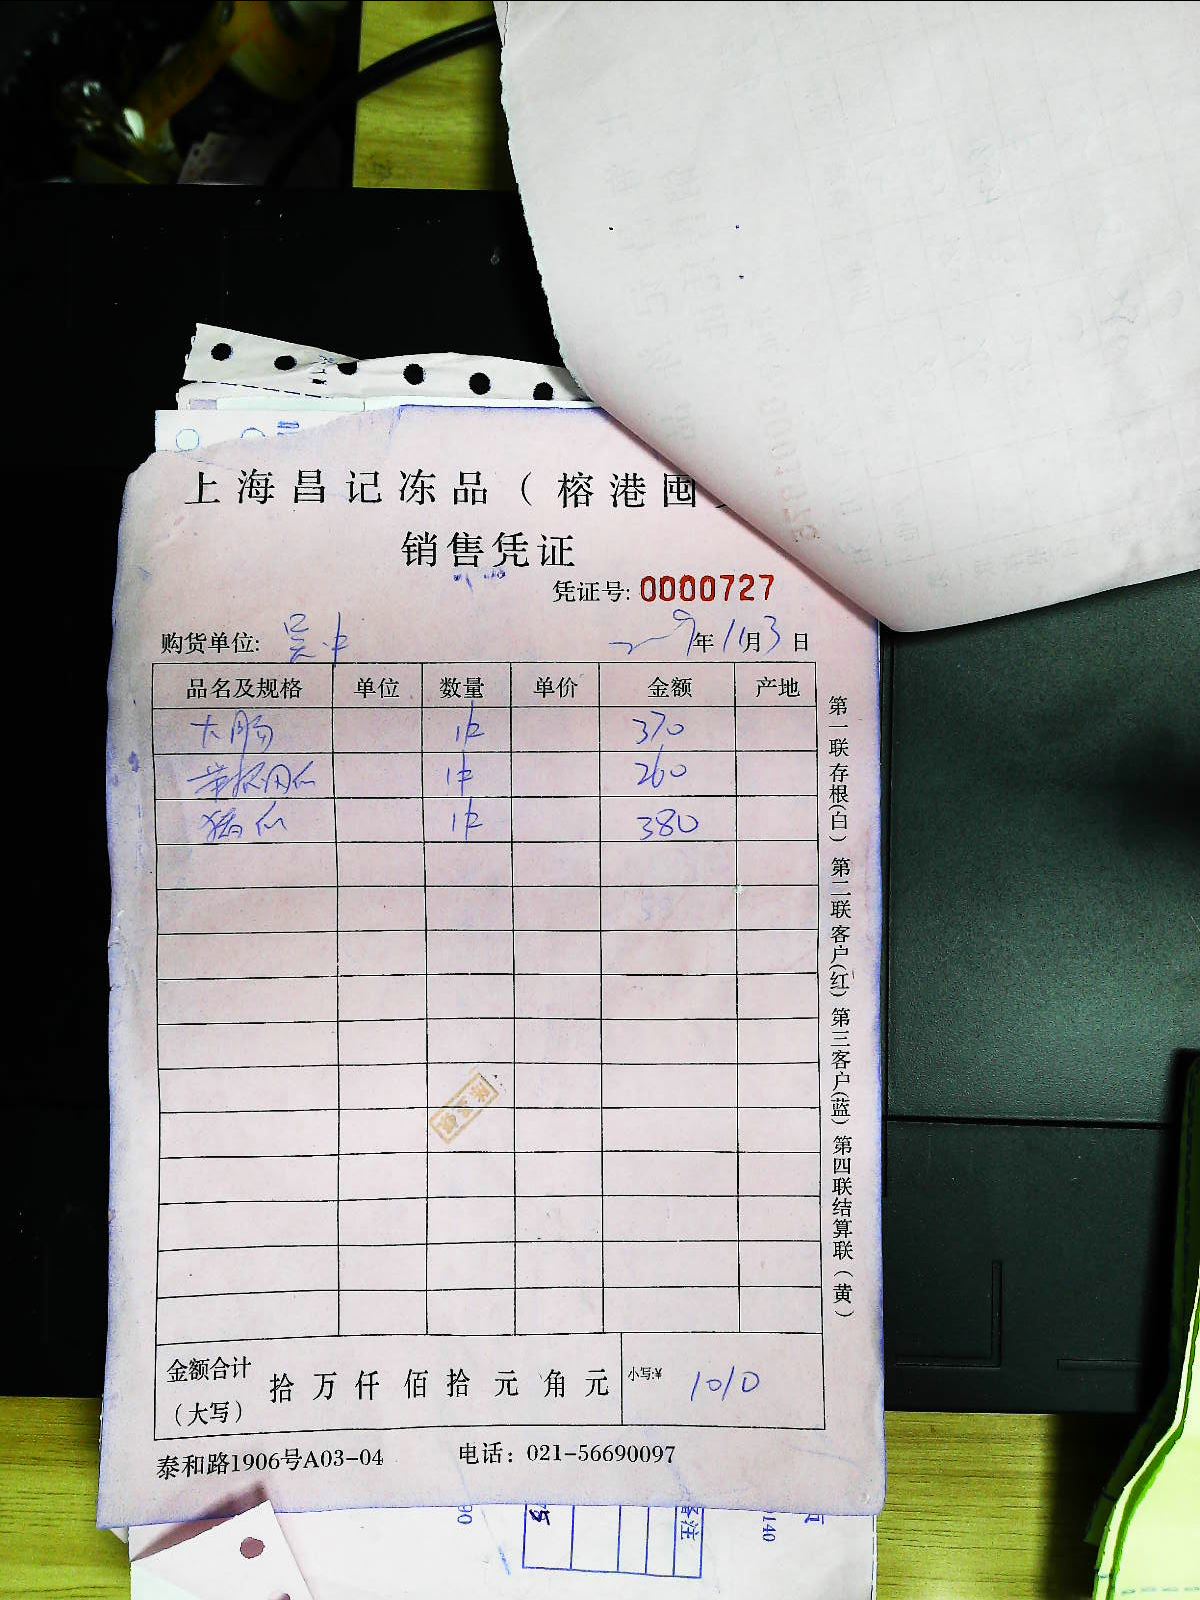 上海昌记冻品（榕港囤
销售凭证
凭证号: 0000727
购货单位: 吴中 年11月3日
品名及规格 单位 数量 单价 金额 产地
大肠 1件 370
1件 260
猪爪 1件 380
金额合计（大写） 拾万仟佰拾元角元 小写:¥ 1010
泰和路1906号A03-04 电话：021-56690097
第一联存根(白) 第二联客户(红) 第三客户(蓝) 第四联结算联（黄）
备注
140